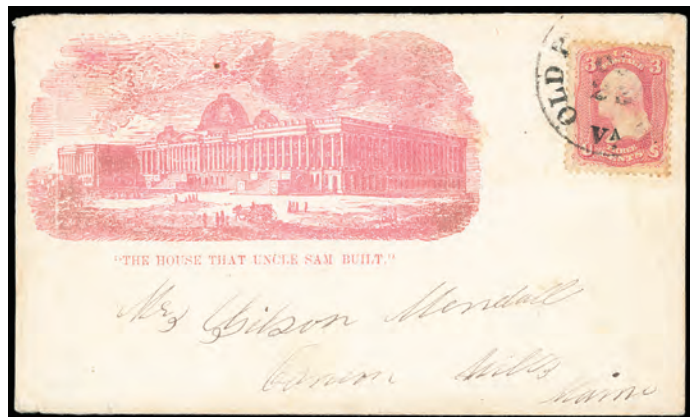 OLD P
22
VA
3 3
"THE HOUSE THAT UNCLE SAM BUILT."
Mrs Gibson Mendall
Mills
Maine